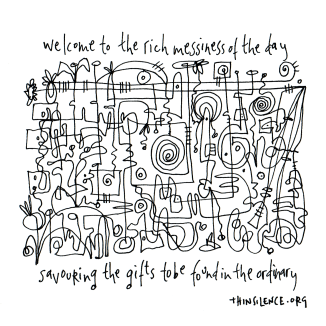 welcome to the rich messiness of the day
savouring the gifts to be found in the ordinary
thinsilence.org